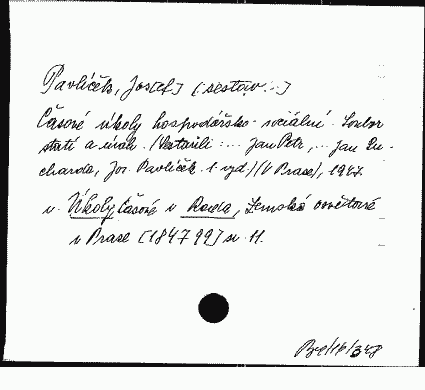 Pavlíček, Josef] [:sestav...]
Časové úkoly hospodářsko-sociální. Soubor
statí a úvah. (Sestavili: ... Jan Petr, ... Jan Su-
charda, Jos. Pavlíček. 1. vyd.) (V Praze), 1947.
v Úkoly časové v Rada, Zemská osvětová
v Praze [184799] sv. 11.